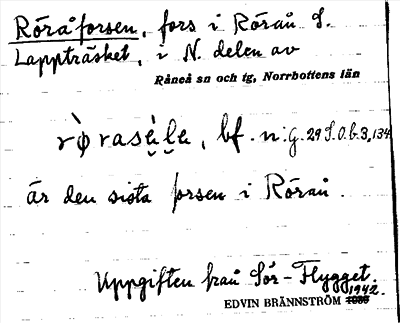 Röråforsen, fors i Rörån S.
Lappträsket, i N. delen av
Råneå sn och tg, Norrbottens län
rø̀raSè̮l̮e, bf. n. G. 29 S.O.b.3,134
är den sista forsen i Rörån.
Uppgiften från Sör-Flygget.
1942.
EDVIN BRÄNNSTRÖM 1936